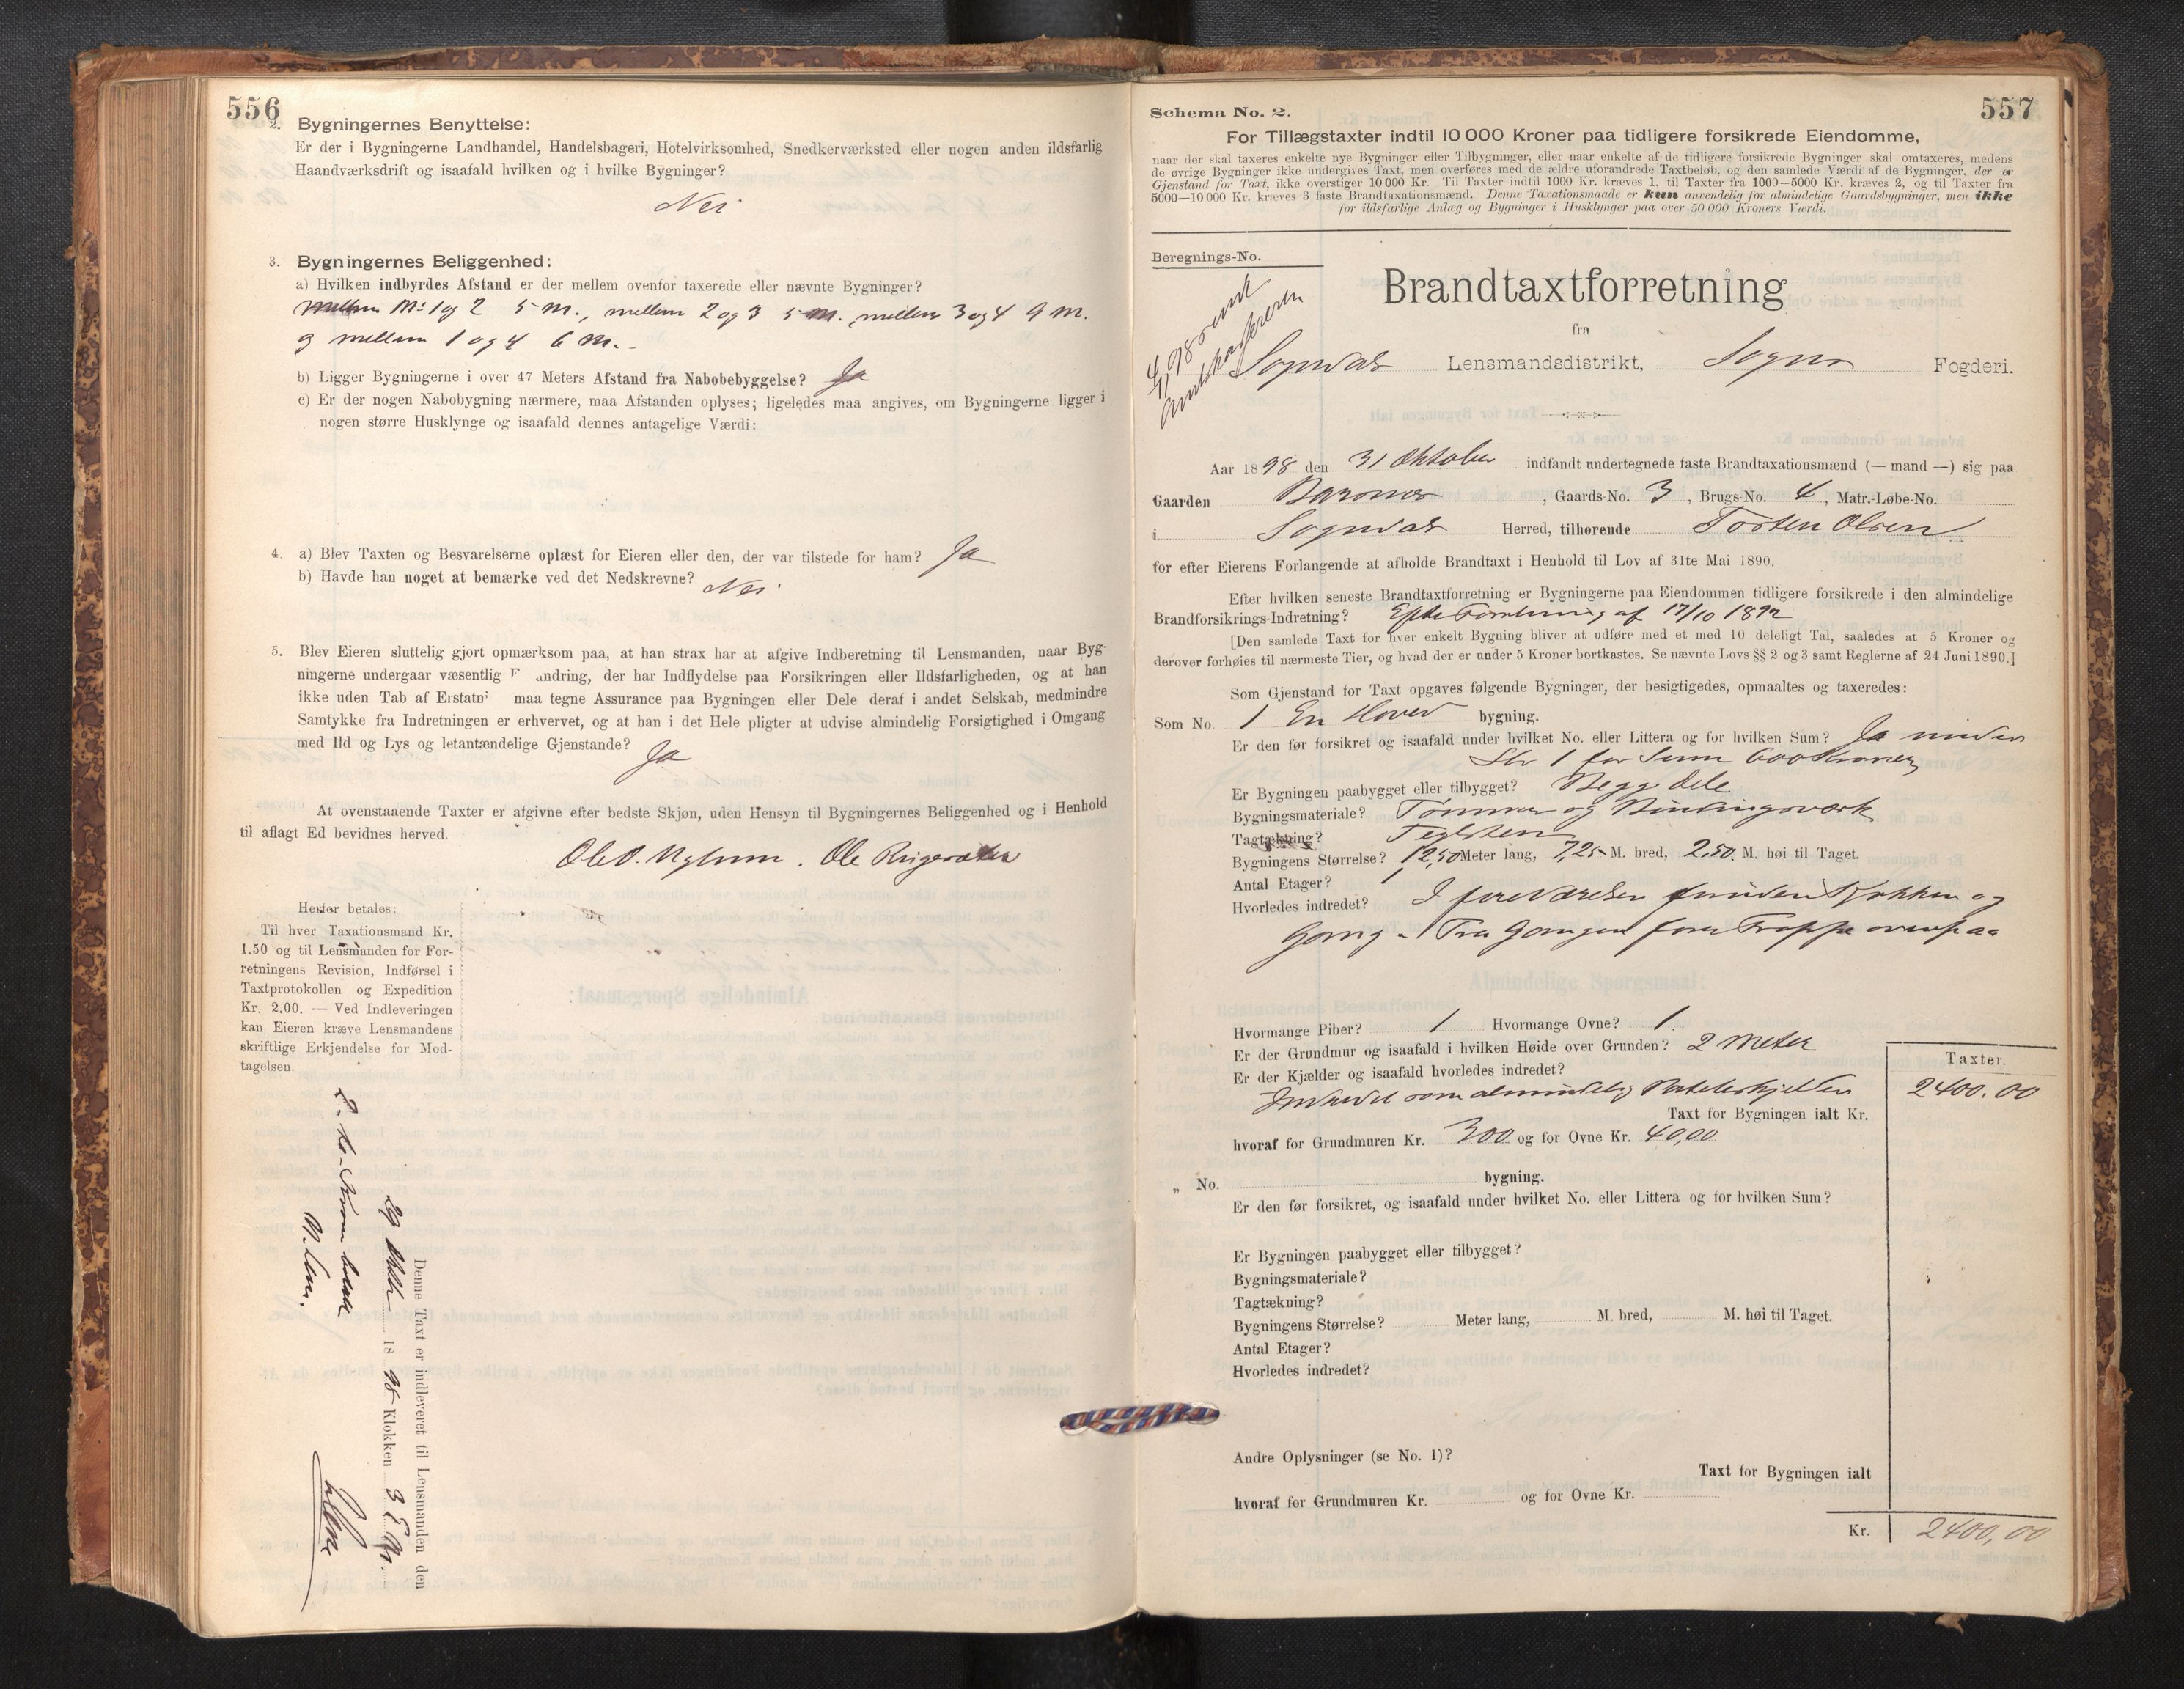 556
2. Bygningernes Benyttelse:
Er der i Bygningerne Landhandel, Handelsbageri, Hotelvirksomhed, Snedkerværksted eller nogen anden ildsfarlig
Haandværksdrift og isaafald hvilken og i hvilke Bygninger?
Nei
3. Bygningernes Beliggenhed:
a) Hvilken indbyrdes Afstand er der mellem ovenfor taxerede eller nævnte Bygninger?
Mellem No 1 og 2 5 M., mellem 2 og 3 5 M. mellem 3 og 4 9 M.
og mellem 1 og 4 6 M.
b) Ligger Bygningerne i over 47 Meters Afstand fra Nabobebyggelse? Ja
c) Er der nogen Nabobygning nærmere, maa Afstanden oplyses; ligeledes maa angives, om Bygningerne ligger i
nogen større Husklynge og isaafald dennes antagelige Værdi:
4. a) Blev Taxten og Besvarelserne oplæst for Eieren eller den, der var tilstede for ham? Ja
b) Havde han noget at bemærke ved det Nedskrevne? Nei
5. Blev Eieren sluttelig gjort opmærksom paa, at han strax har at afgive Indberetning til Lensmanden, naar Byg-
ningerne undergaar væsentlig F andring, der har Indflydelse paa Forsikringen eller Ildsfarligheden, og at han
ikke uden Tab af Erstatn maa tegne Assurance paa Bygningen eller Dele deraf i andet Selskab, medmindre
Samtykke fra Indretningen er erhvervet, og at han i det Hele pligter at udvise almindelig Forsigtighed i Omgang
med Ild og Lys og letantændelige Gjenstande? Ja
At ovenstaaende Taxter er afgivne efter bedste Skjøn, uden Hensyn til Bygningernes Beliggenhed og i Henhold
til aflagt Ed bevidnes herved.
Ole
Hefter betales:
Til hver Taxationsmand Kr.
1.50 og til Lensmanden for For-
retningens Revision, Indførsel i
Taxtprotokollen og Expedition
Kr. 2.00. — Ved Indleveringen
kan Eieren kræve Lensmandens
skriftlige Erkjendelse for Mod-
tagelsen.
Denne Taxt er indleveret til Lensmanden den
29 1898 Klokken 3
557
Schema No. 2.
For Tillægstaxter indtil 10 000 Kroner paa tidligere forsikrede Eiendomme,
naar der skal taxeres enkelte nye Bygninger eller Tilbygninger, eller naar enkelte af de tidligere forsikrede Bygninger skal omtaxeres, medens
de øvrige Bygninger ikke undergives Taxt, men overføres med de ældre uforandrede Taxtbeløb, og den samlede Værdi af de Bygninger, der er
Gjenstand for Taxt, ikke overstiger 10 000 Kr. Til Taxter indtil 1000 Kr. kræves 1, til Taxter fra 1000—5000 Kr. kræves 2, og til Taxter fra
5000—10 000 Kr. kræves 3 faste Brandtaxationsmænd. Denne Taxationsmaade er kun anvendelig for almindelige Gaardsbygninger, men ikke
for ildsfarlige Anlæg og Bygninger i Husklynger paa over 50 000 Kroners Værdi.
Beregnings-No.
Brandtaxtforretning
fra
Sogndal Lensmandsdistrikt, Sogns Fogderi.
Aar 1898 den 31 Oktober indfandt undertegnede faste Brandtaxationsmænd (— mand —) sig paa
Gaarden , Gaards-No. 3, Brugs-No. 4, Matr.-Løbe-No.
i Sogndal Herred, tilhørende Torsten Olsen
for efter Eierens Forlangende at afholde Brandtaxt i Henhold til Lov af 31te Mai 1890.
Efter hvilken seneste Brandtaxtforretning er Bygningerne paa Eiendommen tidligere forsikrede i den almindelige
Brandforsikrings-Indretning? Efter Forretning af 17/10 1892
[Den samlede Taxt for hver enkelt Bygning bliver at udføre med et med 10 deleligt Tal, saaledes at 5 Kroner og
derover forhøies til nærmeste Tier, og hvad der er under 5 Kroner bortkastes. Se nævnte Lovs §§ 2 og 3 samt Reglerne af 24 Juni 1890.]
Som Gjenstand for Taxt opgaves følgende Bygninger, der besigtigedes, opmaaltes og taxeredes:
Som No. 1 En Hoved bygning.
Er den før forsikret og isaafald under hvilket No. eller Littera og for hvilken Sum? Ja under
1 for Sum 600 Kroner
Er Bygningen paabygget eller tilbygget? Begge dele
Bygningsmateriale? Tømmer og Bindingsværk
Tagtækning? Teglsten
Bygningens Størrelse? 12,50 Meter lang, 7,25 M. bred, 2,50 M. høi til Taget.
Antal Etager? 1
Hvorledes indredet? I foreværelse Kjøkken og
Gang. Fra Gangen fører Trappe ovenpaa
Hvormange Piber? 1 Hvormange Ovne? 1
Er der Grundmur og isaafald i hvilken Høide over Grunden? 2 Meter
Er der Kjælder og isaafald hvorledes indredet?
Indredet som almindelig
Taxter.
2400.00
Taxt for Bygningen ialt Kr.
hvoraf for Grundmuren Kr. 300 og for Ovne Kr. 40,00
„ No. bygning.
Er den før forsikret, og isaafald under hvilket No. eller Littera og for hvilken Sum?
Er Bygningen paabygget eller tilbygget?
Bygningsmateriale?
Tagtækning?
Bygningens Størrelse? Meter lang, M. bred, M. høi til Taget.
Antal Etager?
Hvorledes indredet?
Andre Oplysninger (se No. 1)?
Taxt for Bygningen ialt
hvoraf for Grundmuren Kr. og for Ovne Kr.
Kr. 2400,00